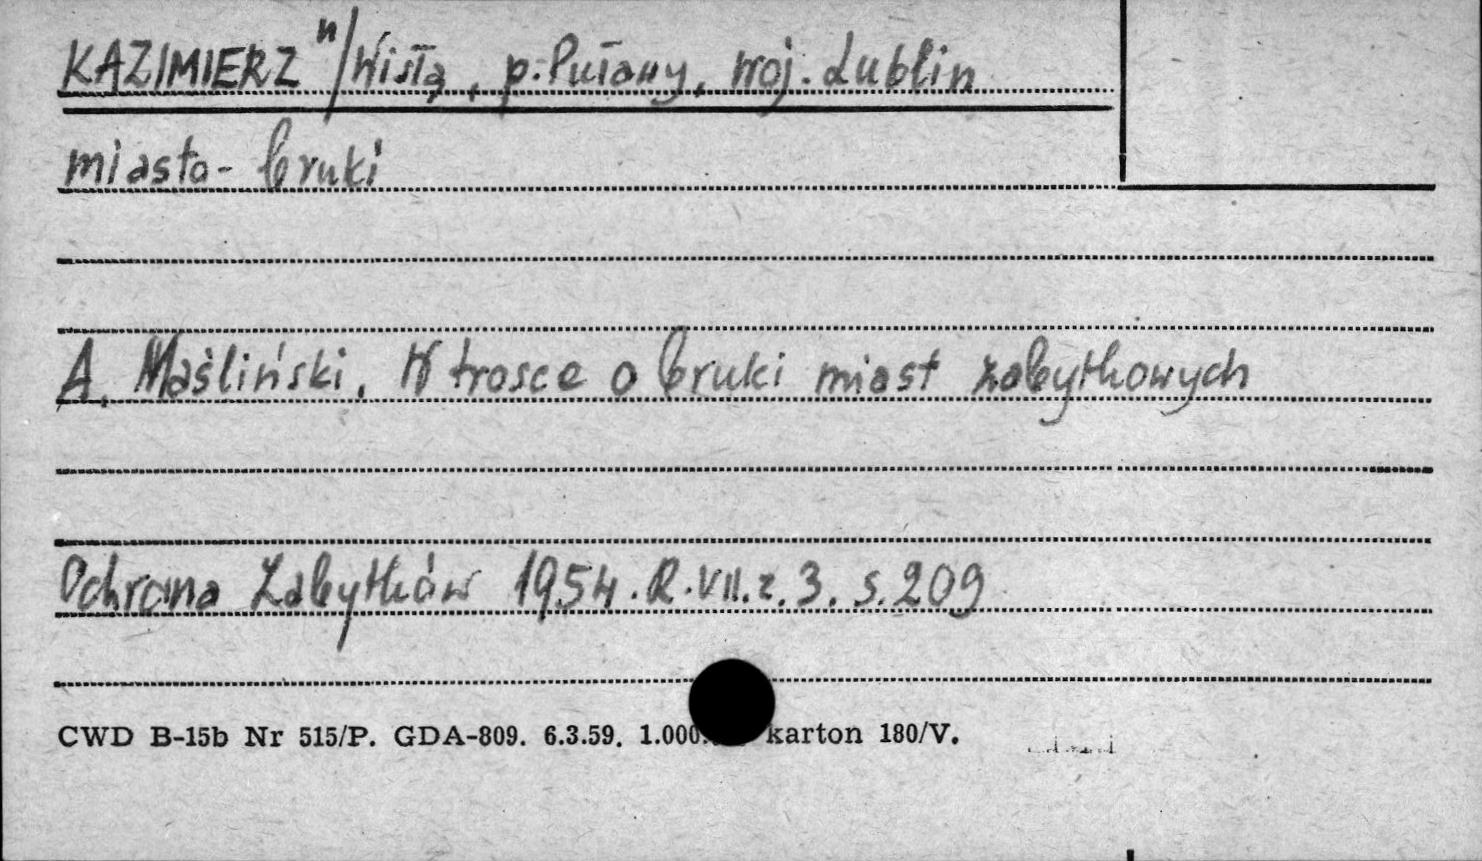 KAZIMIERZ n/Wisłą, p. Puławy, woj. Lublin
miasto - bruki
A. Maśliński. W trosce o bruki miast zabytkowych
Ochrona Zabytków 1954. R. VII. z. 3. s. 209
CWD B-15b Nr 515/P. GDA-809. 6.3.59. 1.000. karton 180/V.